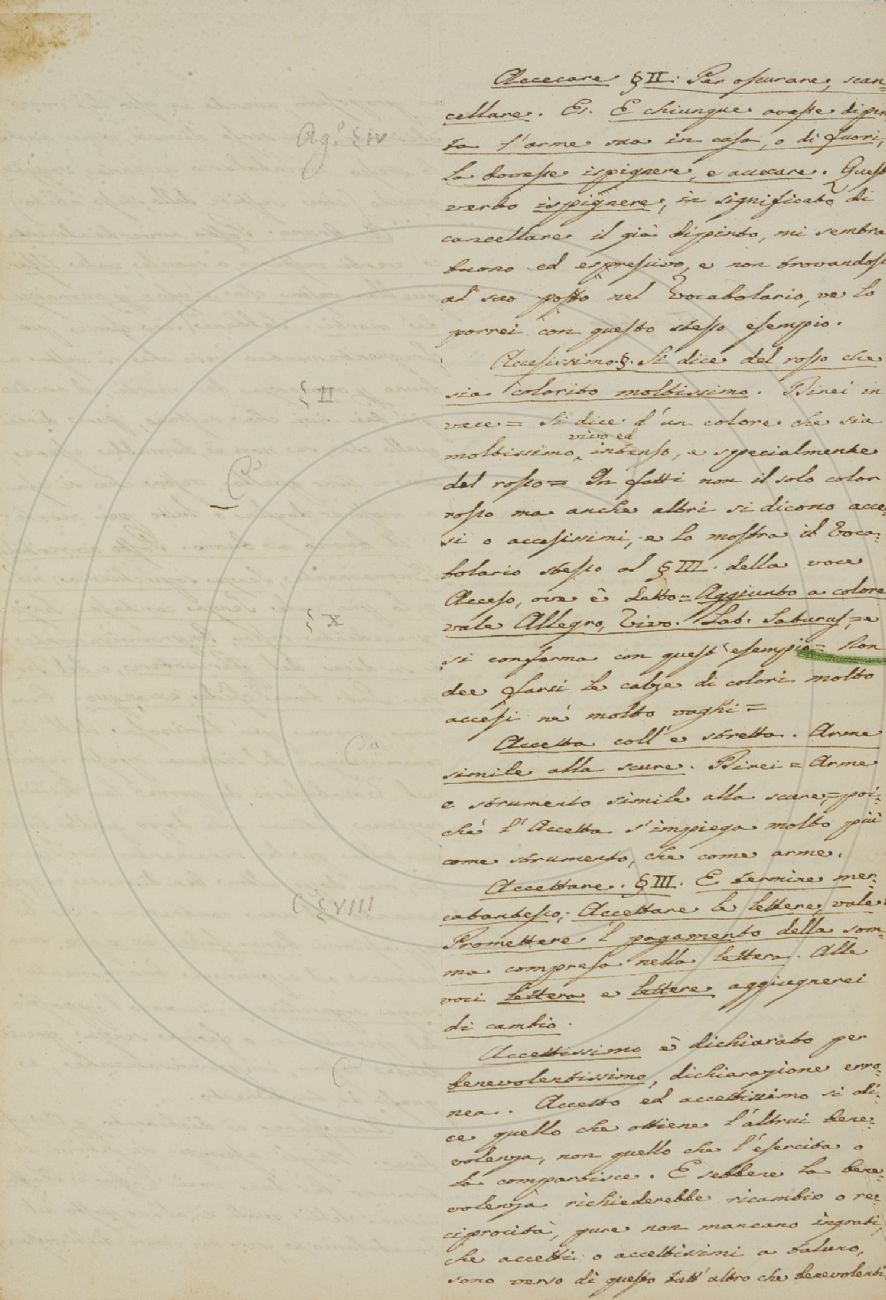 Accecare §II. Per oscurare, scan-
cellare. Es. E chiunque avesse dipin
ta l'arme sua in casa, o di fuori,
la dovesse ispignere, e accecare. Quest
verbo ispignere, in significato di
cancellare il già dipinto, mi sembra
buono ed espressivo, e non trovandosi
al suo posto nel Vocabolario, ve lo
porrei con questo stesso esempio.
Accesissimo. §. Si dice del rosso che
sia colorito moltissimo. Direi in
vece = Si dice d'un colore che sia
vivo ed
moltissimo intenso, e specialmente
del rosso = In fatti non il solo color
rosso ma anche altri si dicono acce-
si o accesissimi, e lo mostra il Voca-
bolario stesso al §III. della voce
Acceso, ove è detto = Aggiunto a colore
vale Allegro, Vivo. Lat. Saturus, = e
si conferma con quest'esempio = Non
dee farsi le calze di colori molto
accesi nè molto vaghi =
Accetta coll'e stretta. Arme
simile alla scure. Direi = Arme
e strumento simile alla scure, = poi-
chè l'Accetta s'impiega molto più
come strumento, che come arme.
Accettare. §III. E termine mer-
catantesco; Accettare le lettere, vale
Promettere l pagamento della som-
ma compresa nella lettera. Alle
voci lettera e lettere aggiugnerei
di cambio.
Accettissimo è dichiarato per
benevolentissimo, dichiarazione erro-
nea. Accetto ed accettissimo si di-
ce quello che ottiene l'altrui bene-
volenza, non quello che l'esercita o
la compartisce. E sebbene la bene-
volenza richiederebbe ricambio o re-
ciprocità, pure non mancano ingrati,
che accetti o accettissimi a taluno,
sono verso di questo tutt'altro che benevolenti